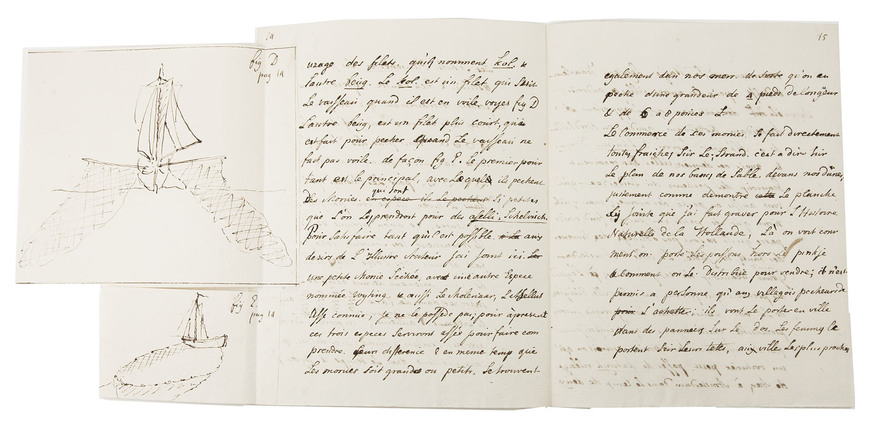 fig D
pag 14
fig E
pag 14
14
usage des filets. qu'ils nomment kol. &
l'autre beug. Le kol est un filet qui suit
Le vaisseau quand il est en voile voyes fig D
L'autre beug, est un filet plus court, qui
est fait pour pecher Quand Le vaisseau ne
fait pas voile. de façon fig E. le premier pour
tant est le principal, avec Lequel ils pechent
des Morues. qui sont si petites
que L'on Les prendroit pour des aselli, Schelvisch.
Pour satisfaire tant qu'il est possible aux
desirs de L'Illustre orateur j'ai joint ici
une petite Morue Sechée avec une autre Espece
nommée voyting. & aussi Le Molenaar, L'Asellus
connue, je ne la possede pas, pour à present
ces trois especes serviront assés pour faire com
prendre. Leurs difference & en meme temp que
Les morues soit grandes ou petits. Se trouvent
15
egalement dans nos mers. de sorte qu'on en
peche d'une grandeur de 4 pieds de longueur
& de 6 a 8 pouces
Le Commerce de ces morues. Se fait directement
toutes fraiches sur Le Strand. c'est a dire sur
Le plan de nos bancs de Sable. devans nos dunes,
justement comme demontre la planche
cy jointe que j'ai fait graver pour l'Histoire
Naturelle de la Hollande. Là on voit com
ment on porte Les poissons hors Les pinkje
& comment on Le distribue pour vendre; & n'est
permis a personne qu'aux villageois pecheurs de
L'achetter; ils vont Le porter en ville
dans des panneaux sur Le dos. Les femmes le
portent sur Leurs tettes, aux ville Les plus proches